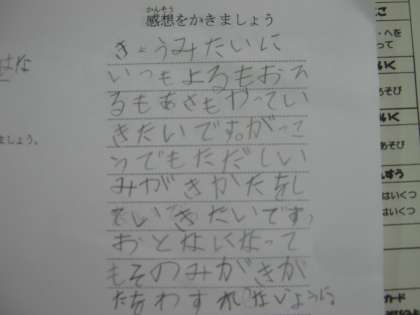 かんそう
感想をかきましょう
きょうみたいに
いつもよるもおひ
るもあさもやってい
きたいです。がっこ
うでもただしい
みがきかたをし
ていきたいです。
おとなになって
もそのみがきか
たをわすれないように。
はな
ましょう。
へを
って
あそび
あそび
はいくつ
はいくつ
カード